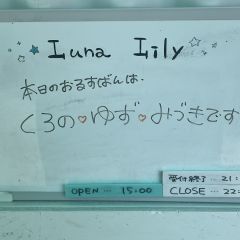 Luna Lily
本日のおるすばんは、
くろの♥ゆず♥みづきです
受付終了…21:
OPEN … 15:00
CLOSE … 22: